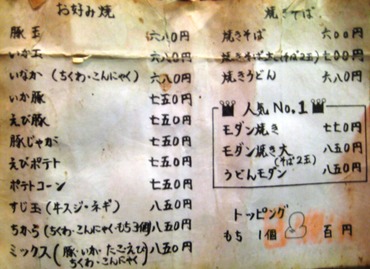 お好み焼
豚玉 六八〇円
いか玉 六八〇円
いなか(ちくわ・こんにゃく) 六八〇円
いか豚 七五〇円
えび豚 七五〇円
豚じゃが 七五〇円
えびポテト 七五〇円
ポテトコーン 七五〇円
すじ玉(牛スジ・ネギ) 八五〇円
ちから(ちくわ・こんにゃくもち3個) 八五〇円
ミックス(豚・いか・たこ・えび ちくわ・こんにゃく) 八五〇円
焼きそば
焼きそば 六〇〇円
焼きそば大(そば2玉) 七〇〇円
焼きうどん 六八〇円
人気No.1
モダン焼き 七七〇円
モダン焼き大(そば2玉) 八五〇円
うどんモダン 八五〇円
トッピング
もち 1個 百円